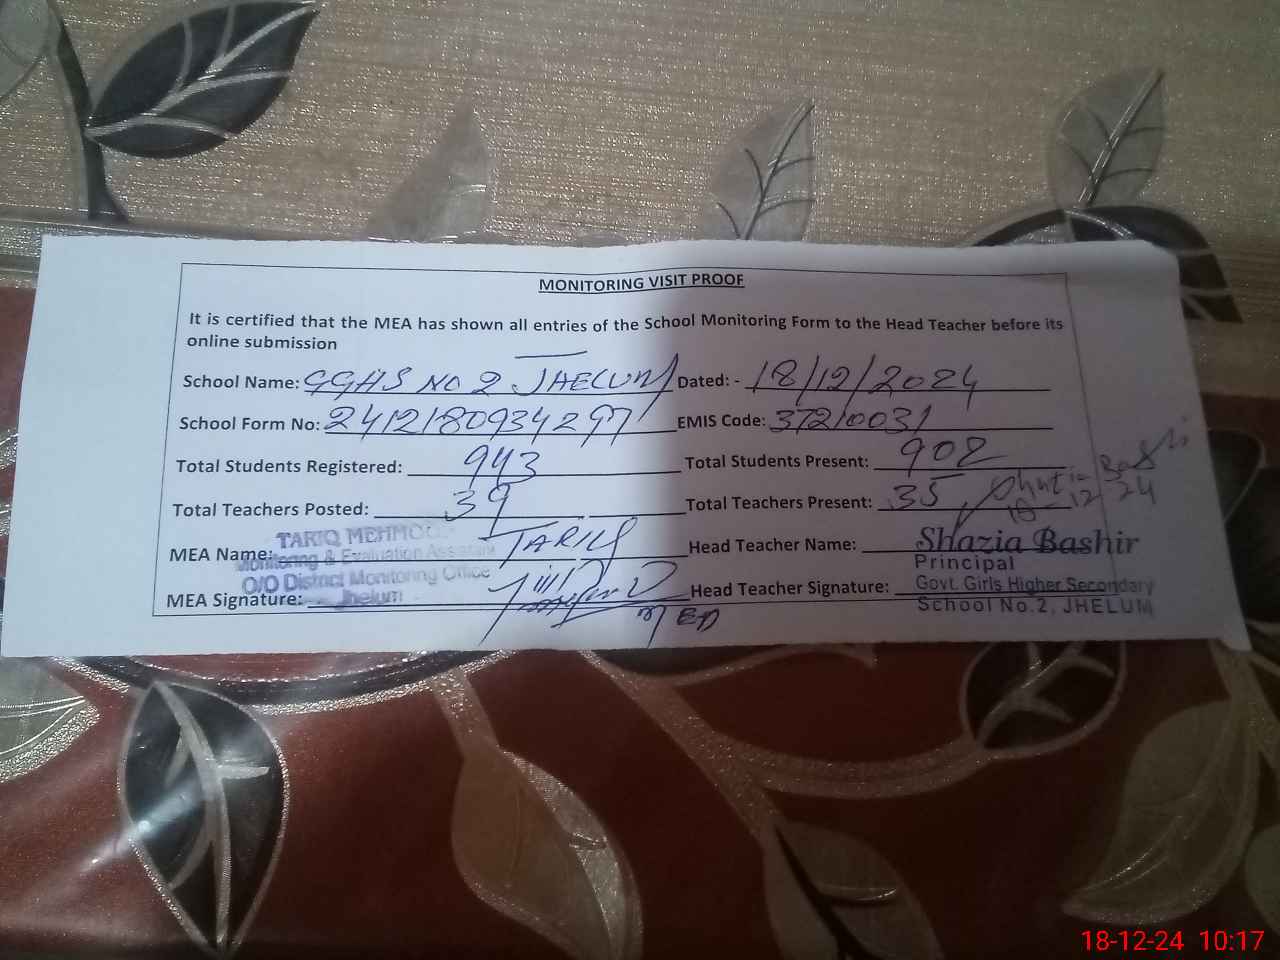 MONITORING VISIT PROOF
It is certified that the MEA has shown all entries of the School Monitoring Form to the Head Teacher before its
online submission
School Name: GGHS NO 2 JHELUM Dated: - 18/12/2024
School Form No: 241218093429 EMIS Code: 37210031
Total Students Registered: 943 Total Students Present: 902
Total Teachers Posted: 39 Total Teachers Present: 35
MEA Name: TARIQ Head Teacher Name:
TARIQ MEHMOOD
Monitoring & Evaluation Assistant
O/O District Monitoring Office
Jhelum
MEA Signature: Head Teacher Signature:
Shazia Bashir
Principal
Govt. Girls Higher Secondary
School No.2, JHELUM
18-12-24 10:17